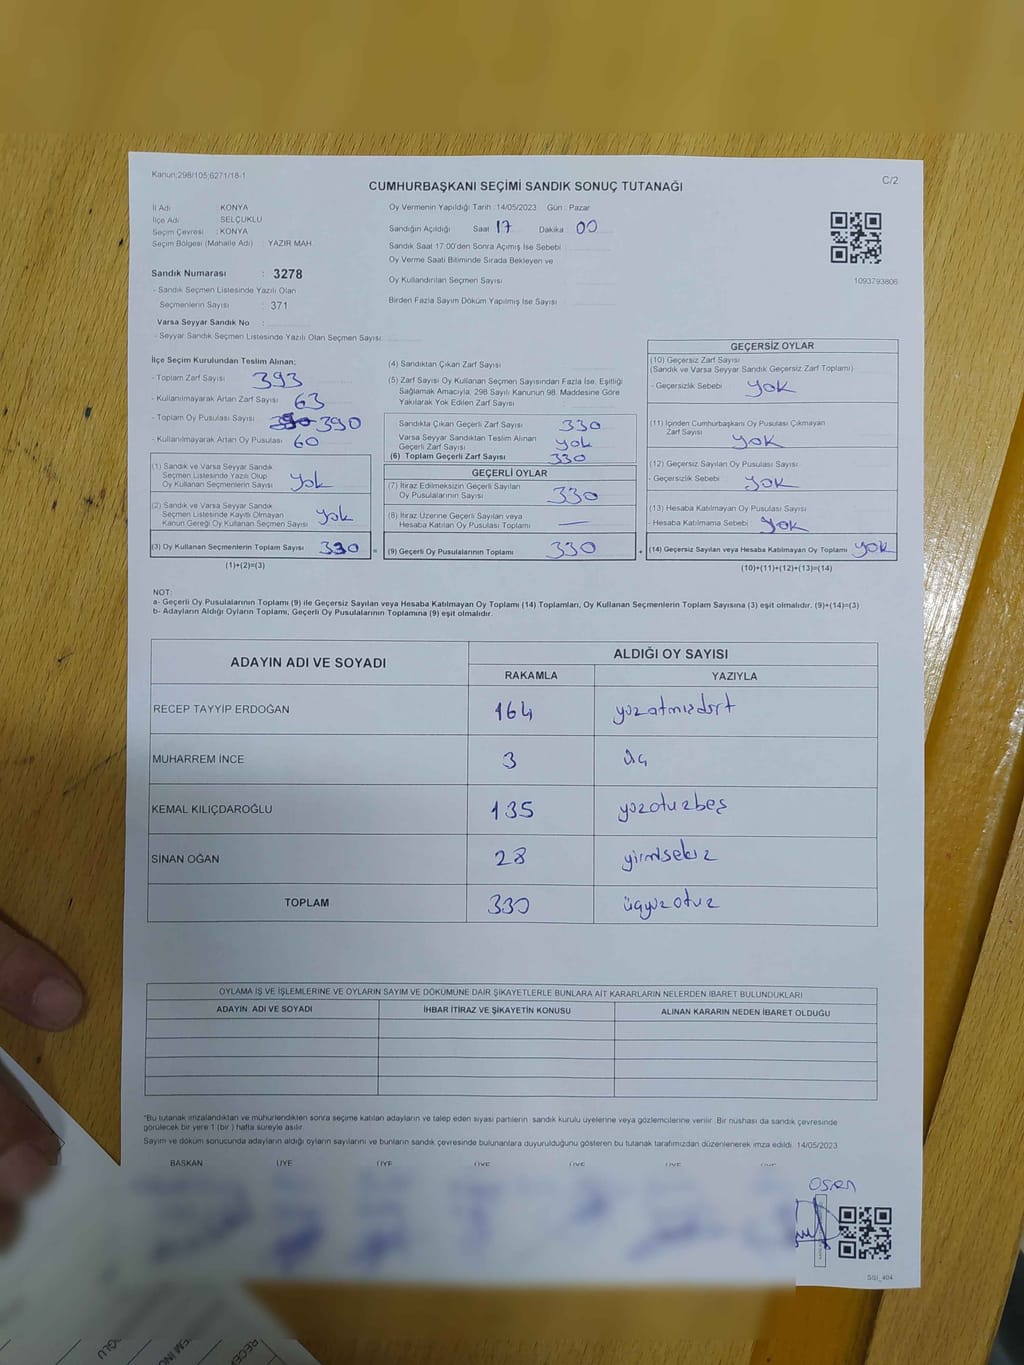 Kanun;298/105;6271/18-1
C/2
CUMHURBAŞKANI SEÇİMİ SANDIK SONUÇ TUTANAĞI
İl Adı : KONYA
İlçe Adı : SELÇUKLU
Seçim Çevresi : KONYA
Seçim Bölgesi (Mahalle Adı) : YAZIR MAH.
Sandık Numarası : 3278
- Sandık Seçmen Listesinde Yazılı Olan
Seçmenlerin Sayısı : 371
Varsa Seyyar Sandık No :
- Seyyar Sandık Seçmen Listesinde Yazılı Olan Seçmen Sayısı:
Oy Vermenin Yapıldığı Tarih : 14/05/2023 Gün : Pazar
Sandığın Açıldığı Saat 17 Dakika 00
Sandık Saat 17:00'den Sonra Açımış İse Sebebi
Oy Verme Saati Bitiminde Sırada Bekleyen ve
Oy Kullandırılan Seçmen Sayısı
Birden Fazla Sayım Döküm Yapılmış İse Sayısı
1093793806
İlçe Seçim Kurulundan Teslim Alınan;
- Toplam Zarf Sayısı 393
- Kullanılmayarak Artan Zarf Sayısı 63
- Toplam Oy Pusulası Sayısı 390
- Kullanılmayarak Artan Oy Pusulası 60
(1) Sandık ve Varsa Seyyar Sandık
Seçmen Listesinde Yazılı Olup
Oy Kullanan Seçmenlerin Sayısı yok
(2) Sandık ve Varsa Seyyar Sandık
Seçmen Listesinde Kayıtlı Olmayan
Kanun Gereği Oy Kullanan Seçmen Sayısı yok
(3) Oy Kullanan Seçmenlerin Toplam Sayısı 330 =
(1)+(2)=(3)
(4) Sandıktan Çıkan Zarf Sayısı
(5) Zarf Sayısı Oy Kullanan Seçmen Sayısından Fazla İse, Eşitliği
Sağlamak Amacıyla; 298 Sayılı Kanunun 98. Maddesine Göre
Yakılarak Yok Edilen Zarf Sayısı
Sandıkta Çıkan Geçerli Zarf Sayısı 330
Varsa Seyyar Sandıktan Teslim Alınan
Geçerli Zarf Sayısı yok
(6) Toplam Geçerli Zarf Sayısı 330
GEÇERLİ OYLAR
(7) İtiraz Edilmeksizin Geçerli Sayılan
Oy Pusulalarının Sayısı 330
(8) İtiraz Üzerine Geçerli Sayılan veya
Hesaba Katılan Oy Pusulası Toplamı —
(9) Geçerli Oy Pusulalarının Toplamı 330 +
GEÇERSİZ OYLAR
(10) Geçersiz Zarf Sayısı
(Sandık ve Varsa Seyyar Sandık Geçersiz Zarf Toplamı)
- Geçersizlik Sebebi yok
(11) İçinden Cumhurbaşkanı Oy Pusulası Çıkmayan
Zarf Sayısı yok
(12) Geçersiz Sayılan Oy Pusulası Sayısı
- Geçersizlik Sebebi yok
(13) Hesaba Katılmayan Oy Pusulası Sayısı
- Hesaba Katılmama Sebebi yok
(14) Geçersiz Sayılan veya Hesaba Katılmayan Oy Toplamı yok
(10)+(11)+(12)+(13)=(14)
NOT:
a- Geçerli Oy Pusulalarının Toplamı (9) ile Geçersiz Sayılan veya Hesaba Katılmayan Oy Toplamı (14) Toplamları, Oy Kullanan Seçmenlerin Toplam Sayısına (3) eşit olmalıdır. (9)+(14)=(3)
b- Adayların Aldığı Oyların Toplamı, Geçerli Oy Pusulalarının Toplamına (9) eşit olmalıdır.
ADAYIN ADI VE SOYADI ALDIĞI OY SAYISI
RAKAMLA YAZIYLA
RECEP TAYYİP ERDOĞAN 164 yüzatmışdört
MUHARREM İNCE 3 üç
KEMAL KILIÇDAROĞLU 135 yüzotuzbeş
SİNAN OĞAN 28 yirmisekiz
TOPLAM 330 üçyüzotuz
OYLAMA İŞ VE İŞLEMLERİNE VE OYLARIN SAYIM VE DÖKÜMÜNE DAİR ŞİKAYETLERLE BUNLARA AİT KARARLARIN NELERDEN İBARET BULUNDUKLARI
ADAYIN ADI VE SOYADI İHBAR İTİRAZ VE ŞİKAYETİN KONUSU ALINAN KARARIN NEDEN İBARET OLDUĞU
*Bu tutanak imzalandıktan ve mühürlendikten sonra seçime katılan adayların ve talep eden siyasi partilerin sandık kurulu üyelerine veya gözlemcilerine verilir. Bir nüshası da sandık çevresinde
görülecek bir yere 1 (bir) hafta süreyle asılır.
Sayım ve döküm sonucunda adayların aldığı oyların sayılarını ve bunların sandık çevresinde bulunanlara duyurulduğunu gösteren bu tutanak tarafımızdan düzenlenerek imza edildi. 14/05/2023
BAŞKAN ÜYE ÜYE ÜYE ÜYE ÜYE ÜYE
SSI_404